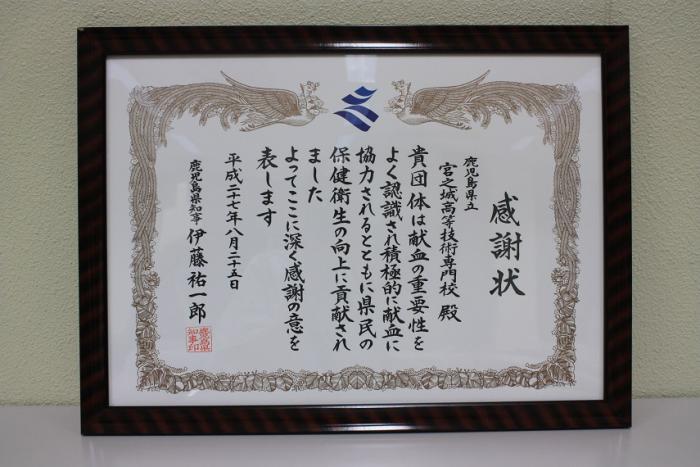 感謝状
鹿児島県立
宮之城高等技術専門校 殿
貴団体は献血の重要性を
よく認識され積極的に献血に
協力されるとともに県民の
保健衛生の向上に貢献され
ました
よってここに深く感謝の意を
表します
平成二十七年八月二十五日
鹿児島県知事 伊藤祐一郎
鹿児島県
知事印